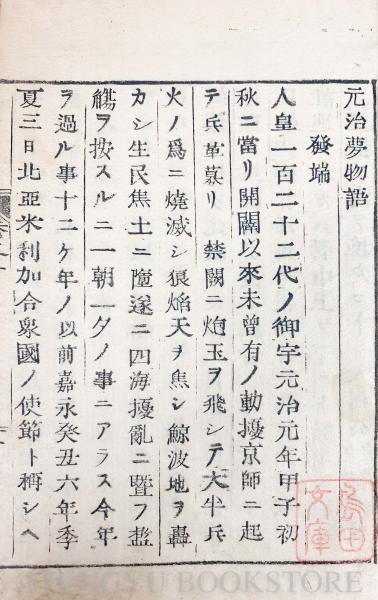 元治夢物語
發端
人皇一百二十二代ノ御宇元治元年甲子初
秋ニ當リ開闢以來未曾有ノ動擾京師ニ起
テ兵革募リ禁闕ニ炮玉ヲ飛シテ大半兵
火ノ爲ニ燒滅シ狼焔天ヲ焦シ鯨波地ヲ轟
カシ生民焦土ニ墮遂ニ四海擾亂ニ曁フ盐
觴ヲ按スルニ一朝一夕ノ事ニアラス今年
ヲ過ル事十二ケ年ノ以前嘉永癸丑六年季
夏三日北亞米利加合衆國ノ使節ト稱シヘ
文庫
BOOKSTORE